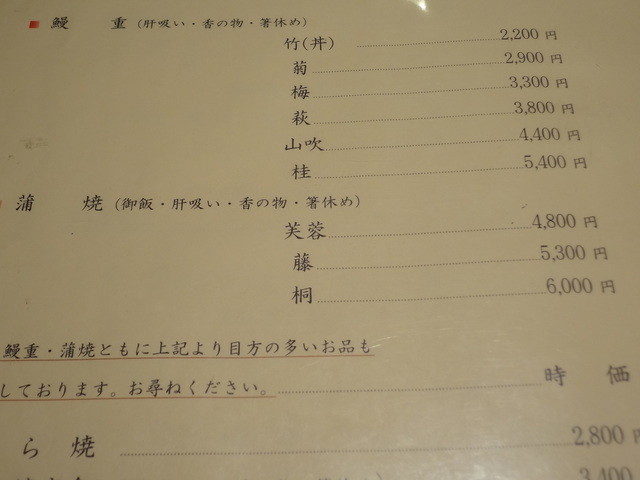 鰻 重 (肝吸い・香の物・箸休め)
竹(丼) 2,200 円
菊 2,900 円
梅 3,300 円
萩 3,800 円
山吹 4,400 円
桂 5,400 円
蒲 焼 (御飯・肝吸い・香の物・箸休め)
芙蓉 4,800 円
藤 5,300 円
桐 6,000 円
鰻重・蒲焼ともに上記より目方の多いお品も
しております。お尋ねください。 時 価
ら 焼 2,800 円
3,400